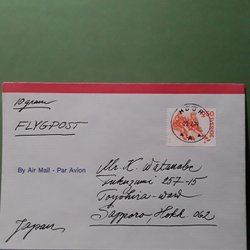 10 gram
FLYGPOST
By Air Mail - Par Avion
Mr. K. Watanabe
Fukuzumi 257-15
Toyohira-ward
Sapporo, Hokk 062
Japan
SVERIGE